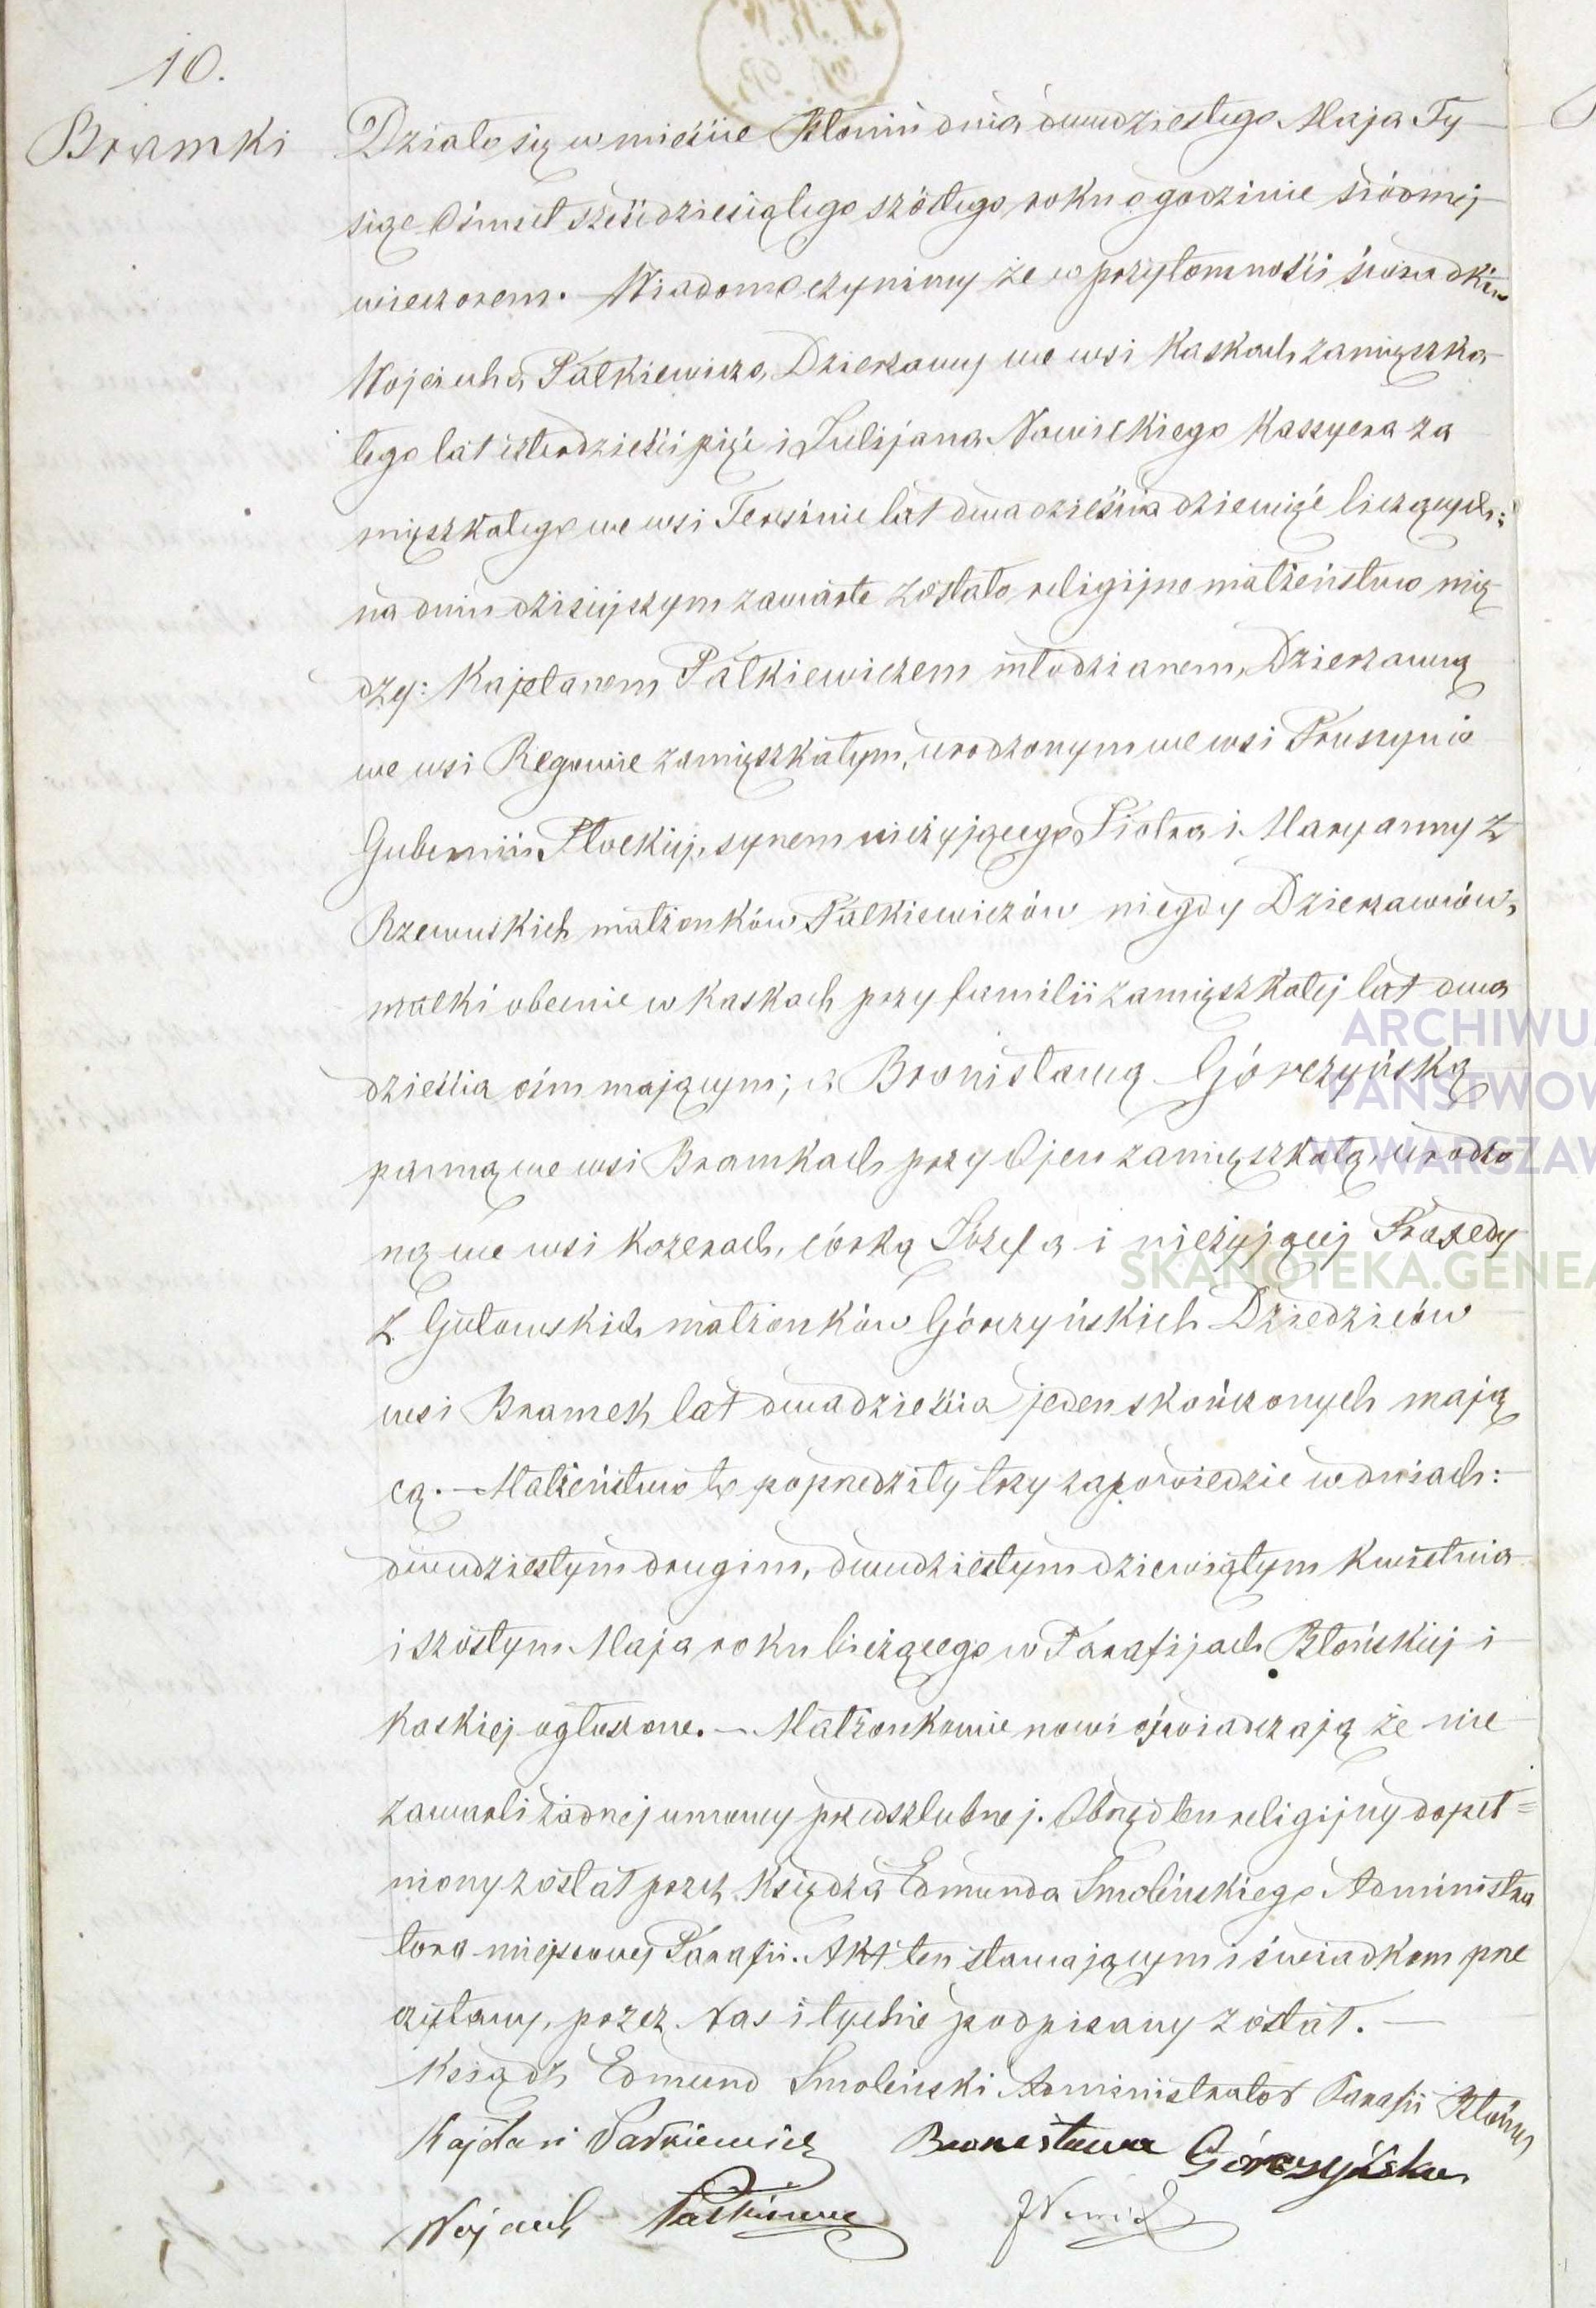 10.
Bramki
Działo się w mieście Błoniu dnia dwudziestego Maja Ty-
siąc Ośmset sześćdziesiątego szóstego roku o godzinie siódmej
wieczorem. Wiadomo czynimy że w przytomności świadków
Wojciecha Pałkiewicza, Dzierzawcy we wsi Kaskach zamięszka-
łego lat czterdzieści pięć i Julijana Nowickiego Kassyera za
mięszkałego we wsi Teresinie lat dwadzieścia dziewięć liczących;
na dniu dzisiejszym zawarte zostało religijne małżeństwo mię-
dzy: Kajetanem Pałkiewiczem młodzianem, Dzierzawcą
we wsi Regowie zamięszkałym, urodzonym we wsi Pruszynie
Gubernii Płockiej, synem nieżyjącego Piotra i Maryanny z
Rzewuskich małżonków Pałkiewiczów niegdy Dzierzawców,
matki obecnie w Kaskach przy familii zamięszkałej lat dwa
dzieścia ośm mającym; a Bronisławą Górczyńską
panną we wsi Bramkach przy Ojcu zamięszkałą, urodzo
ną we wsi Kozerach, córką Józefa i nieżyjącej Praxedy
z Gutowskich małżonków Górczyńskich Dziedziców
wsi Bramek, lat dwadzieścia jeden skończonych mają
cą. — Małżeństwo to poprzedziły trzy zapowiedzie w dniach:
dwudziestym drugim, dwudziestym dziewiątym Kwietnia
i szóstym Maja roku bieżącego w Parafijach Błońskiej i
Kaskiej ogłoszone. — Małżonkowie nowi oświadczają że nie
zawarli żadnej umowy przedszlubnej. Obrzęd ten religijny dopeł=
niony został przez Księdza Edmunda Smoleńskiego Administra
tora miejscowej Parafii. Akt ten stawającym i świadkom prze
czytany, przez Nas i tychże podpisany został. —
Ksiądz Edmund Smoleński Administrator Parafii Błońs
Kajetan Pałkiewicz Bronisława Górczyńska
Wojciech Pałkiewicz
ARCHIWU
PAŃSTWOW
W WARSZAW
SKANOTEKA.GENEA